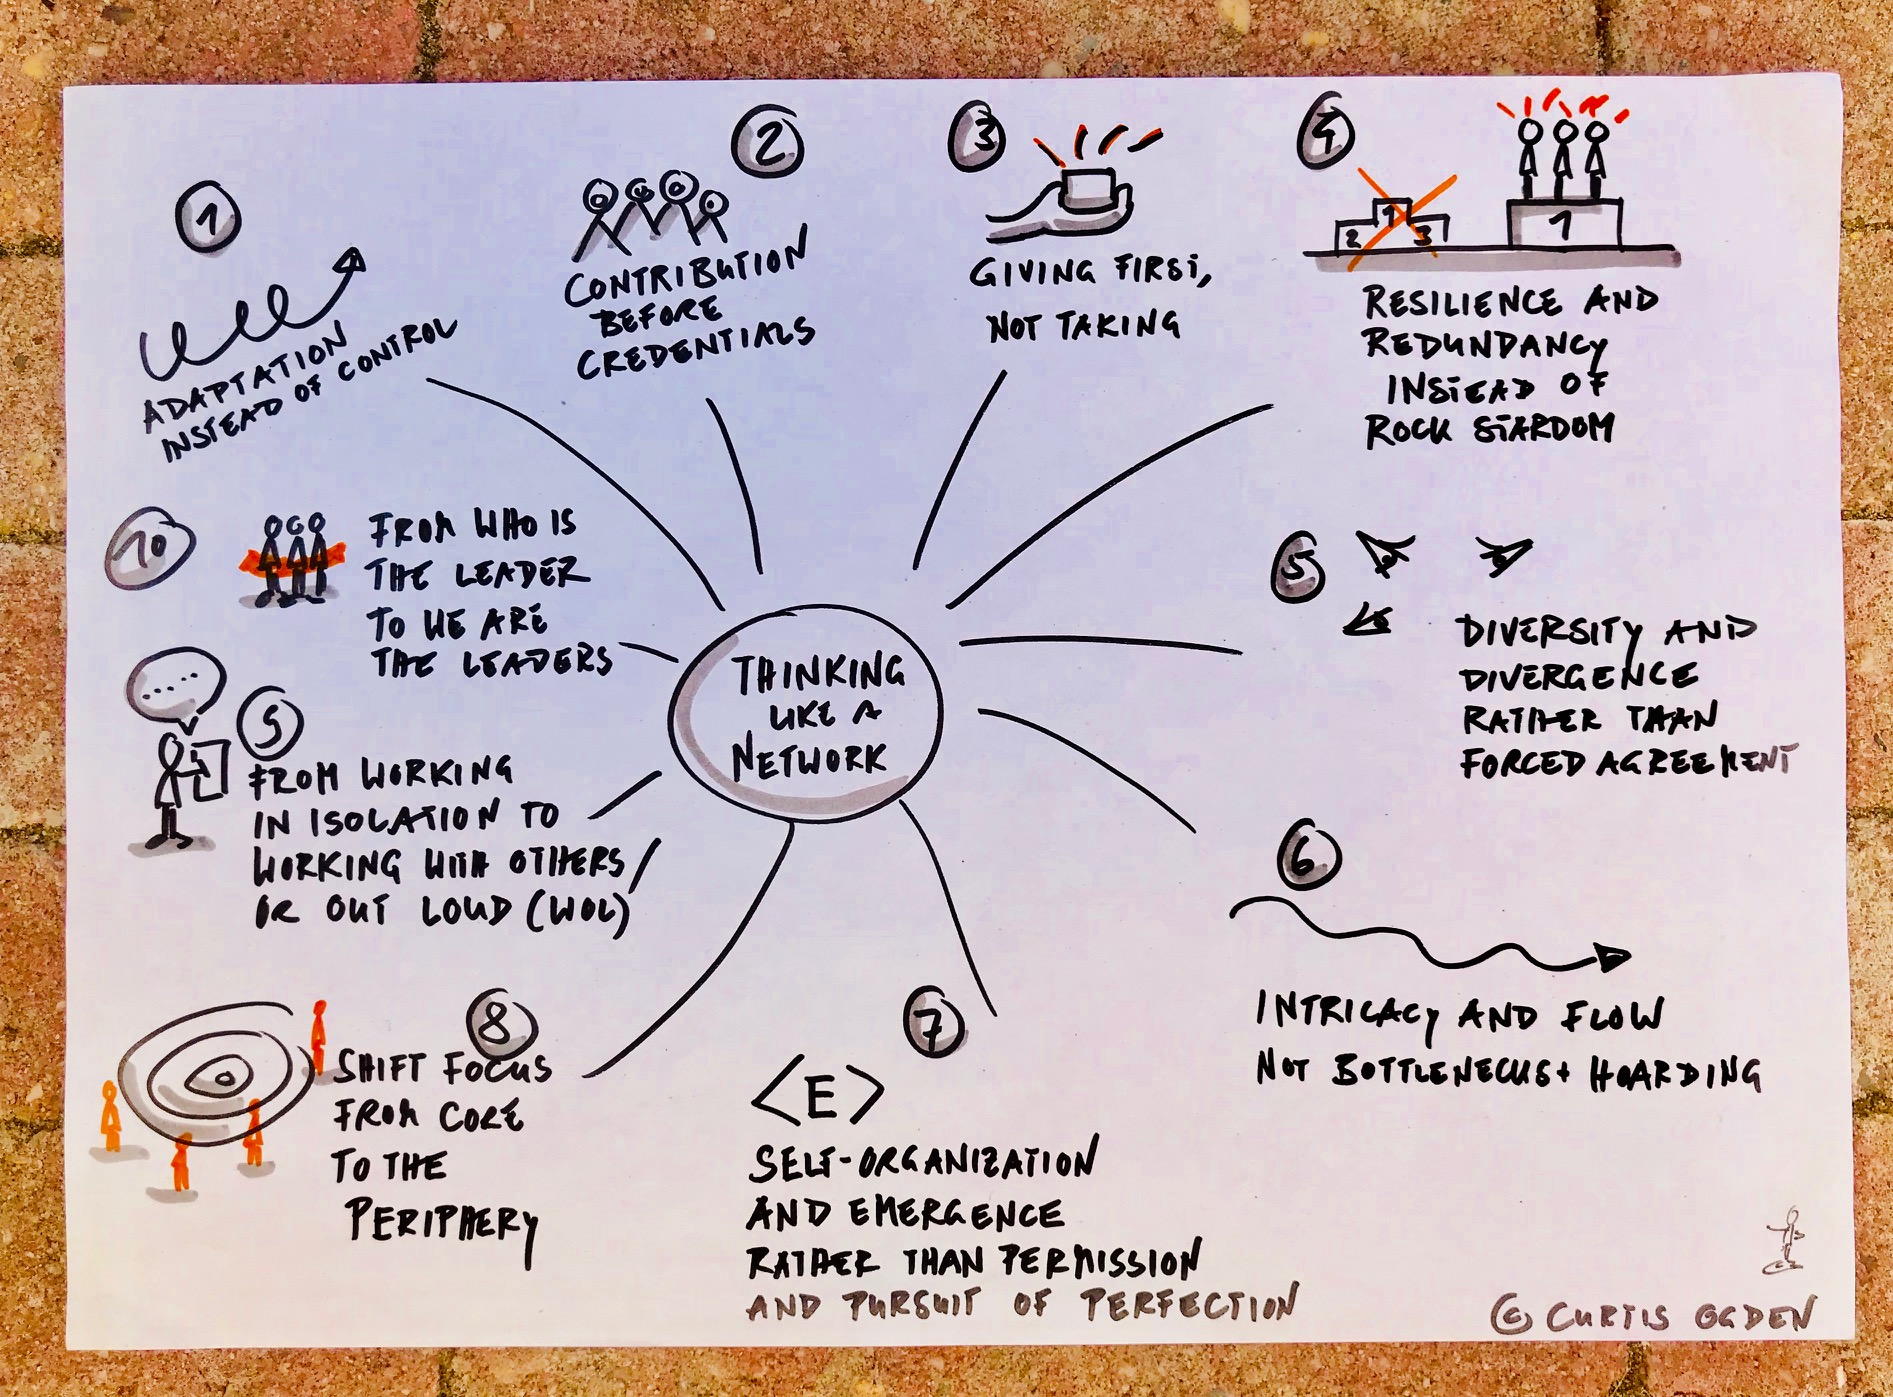 1
ADAPTATION
INSTEAD OF CONTROL
2
CONTRIBUTION
BEFORE
CREDENTIALS
3
GIVING FIRST,
NOT TAKING
4
2
1
3
1
RESILIENCE AND
REDUNDANCY
INSTEAD OF
ROCK STARDOM
5
DIVERSITY AND
DIVERGENCE
RATHER THAN
FORCED AGREEMENT
6
INTRICACY AND FLOW
NOT BOTTLENECKS + HOARDING
7
<E>
SELF-ORGANIZATION
AND EMERGENCE
RATHER THAN PERMISSION
AND PURSUIT OF PERFECTION
8
SHIFT FOCUS
FROM CORE
TO THE
PERIPHERY
9
FROM WORKING
IN ISOLATION TO
WORKING WITH OTHERS/
OR OUT LOUD (WOL)
10
FROM WHO IS
THE LEADER
TO WE ARE
THE LEADERS
THINKING
LIKE A
NETWORK
© CURTIS OGDEN